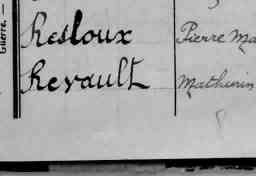 Guerre. —
Resloux Pierre Ma
Revault Mathurin